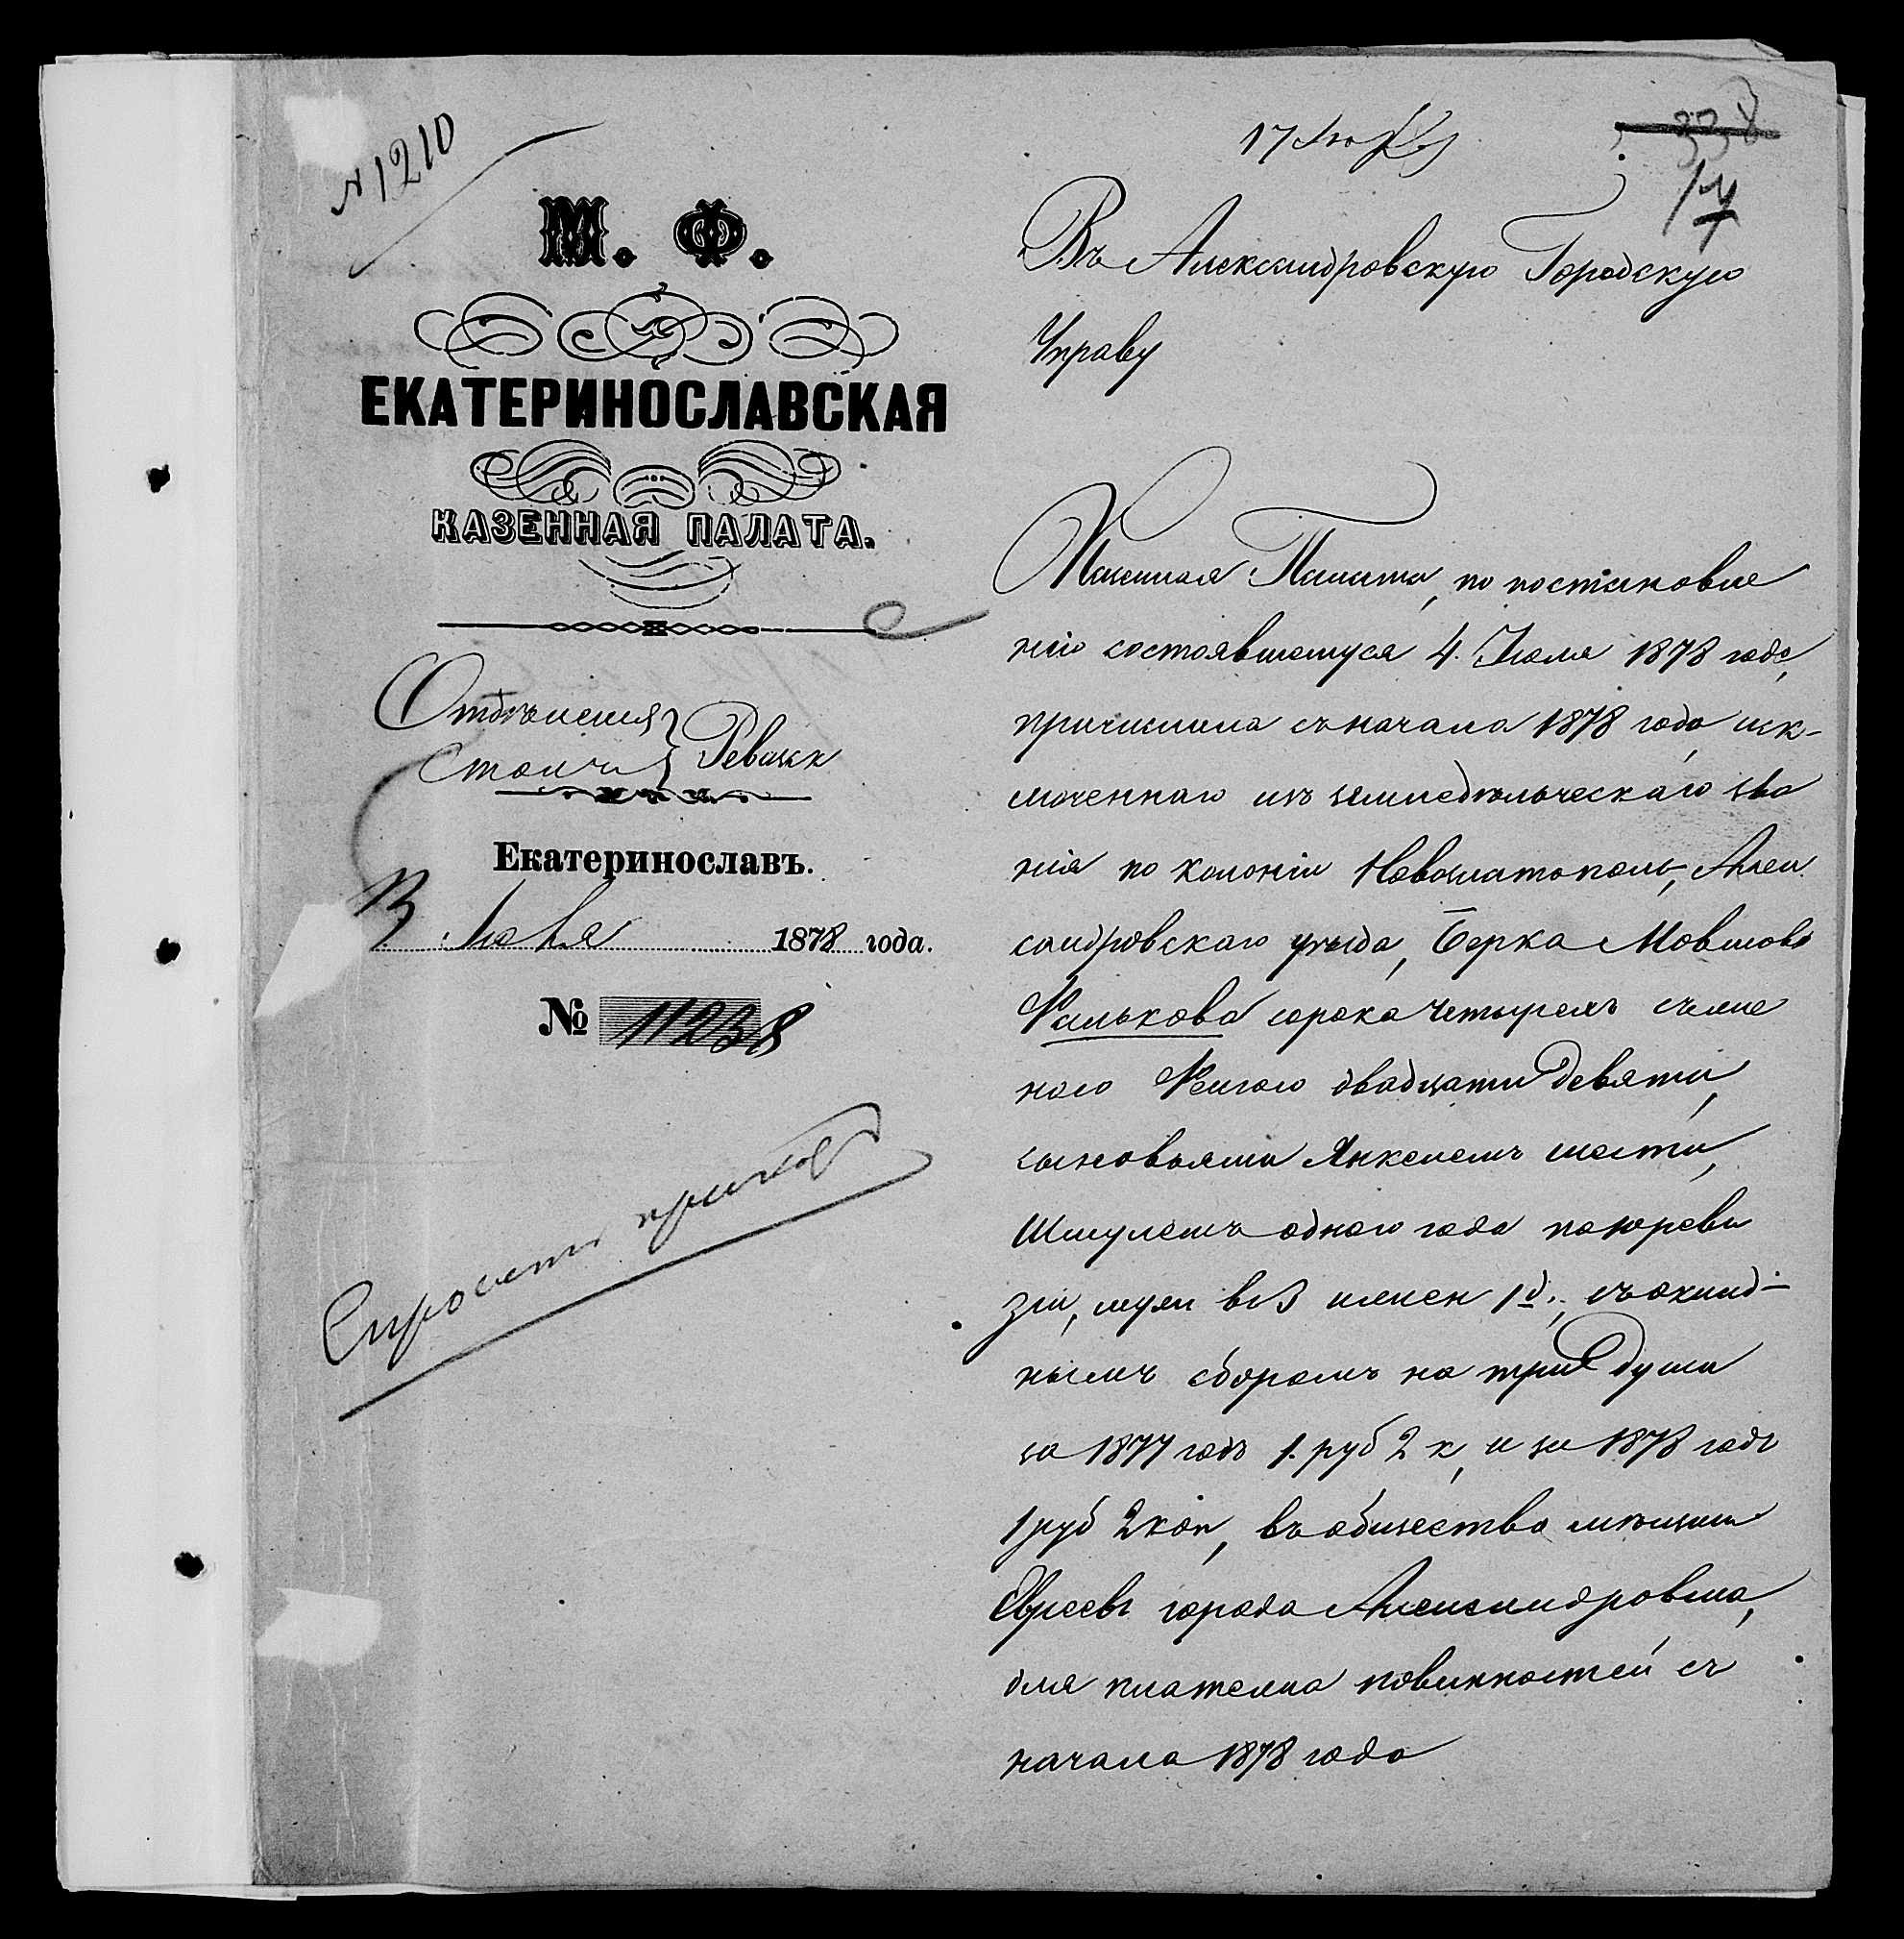 № 1210
М. Ф.
ЕКАТЕРИНОСЛАВСКАЯ
КАЗЕННАЯ ПАЛАТА.
Отдѣленія
Столъ
Екатеринославъ.
13 Іюля 1878 года.
№ 11238
17 Іюля
338
Въ Александровскую Городскую
Управу
Казенная Палата, по постановле
нію состоявшемуся 4. Іюля 1878 года,
причислила съ начала 1878 года иск-
люченнаго изъ земледѣльческаго зва
нія по колоніи Новозлатополь, Алек
сандровскаго уѣзда, Берка Мовшова
Фалькова сорока четырехъ съ жe
ною двадцати девяти,
сыновьями Янкелемъ шести,
Шмулемъ одного года по ревы
зіи, муж 1 д., съ оклад-
нымъ сборомъ на три души
за 1877 годъ 1. руб 2 к, и за 1878 годъ
1 руб 2 коп, въ общество мѣщанъ
Евреевъ города Александровска,
для платежа повинностей съ
начала 1878 года